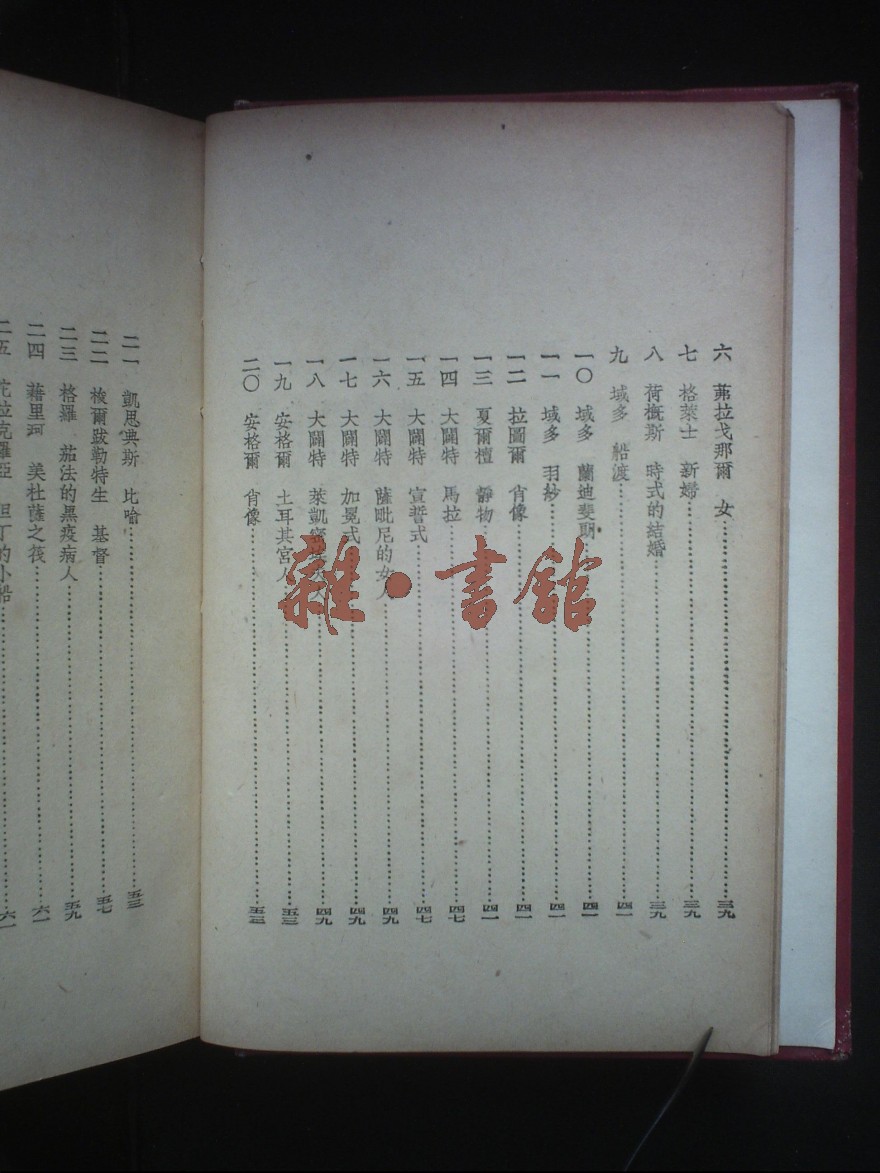 六 茀拉戈那爾 女…………三九
七 格萊士 新婦…………三九
八 荷概斯 時式的結婚…………三九
九 域多 船渡…………四一
一〇 域多 蘭迪斐朗…………四一
一一 域多 羽紗…………四一
一二 拉圖爾 肖像…………四一
一三 夏爾檀 靜物…………四一
一四 大闢特 馬拉…………四七
一五 大闢特 宣誓式…………四七
一六 大闢特 薩毗尼的女人…………四九
一七 大闢特 加冕式…………四九
一八 大闢特 萊凱…………四九
一九 安格爾 土耳其宮人…………五三
二〇 安格爾 肖像…………五三
二一 凱思典斯 比喻…………五三
二二 梭爾跋勒特生 基督…………五七
二三 格羅 茄法的黑疫病人…………五九
二四 藉里珂 美杜薩之筏…………六一
二五 克羅亞 但丁的小船…………六一
雜·書館